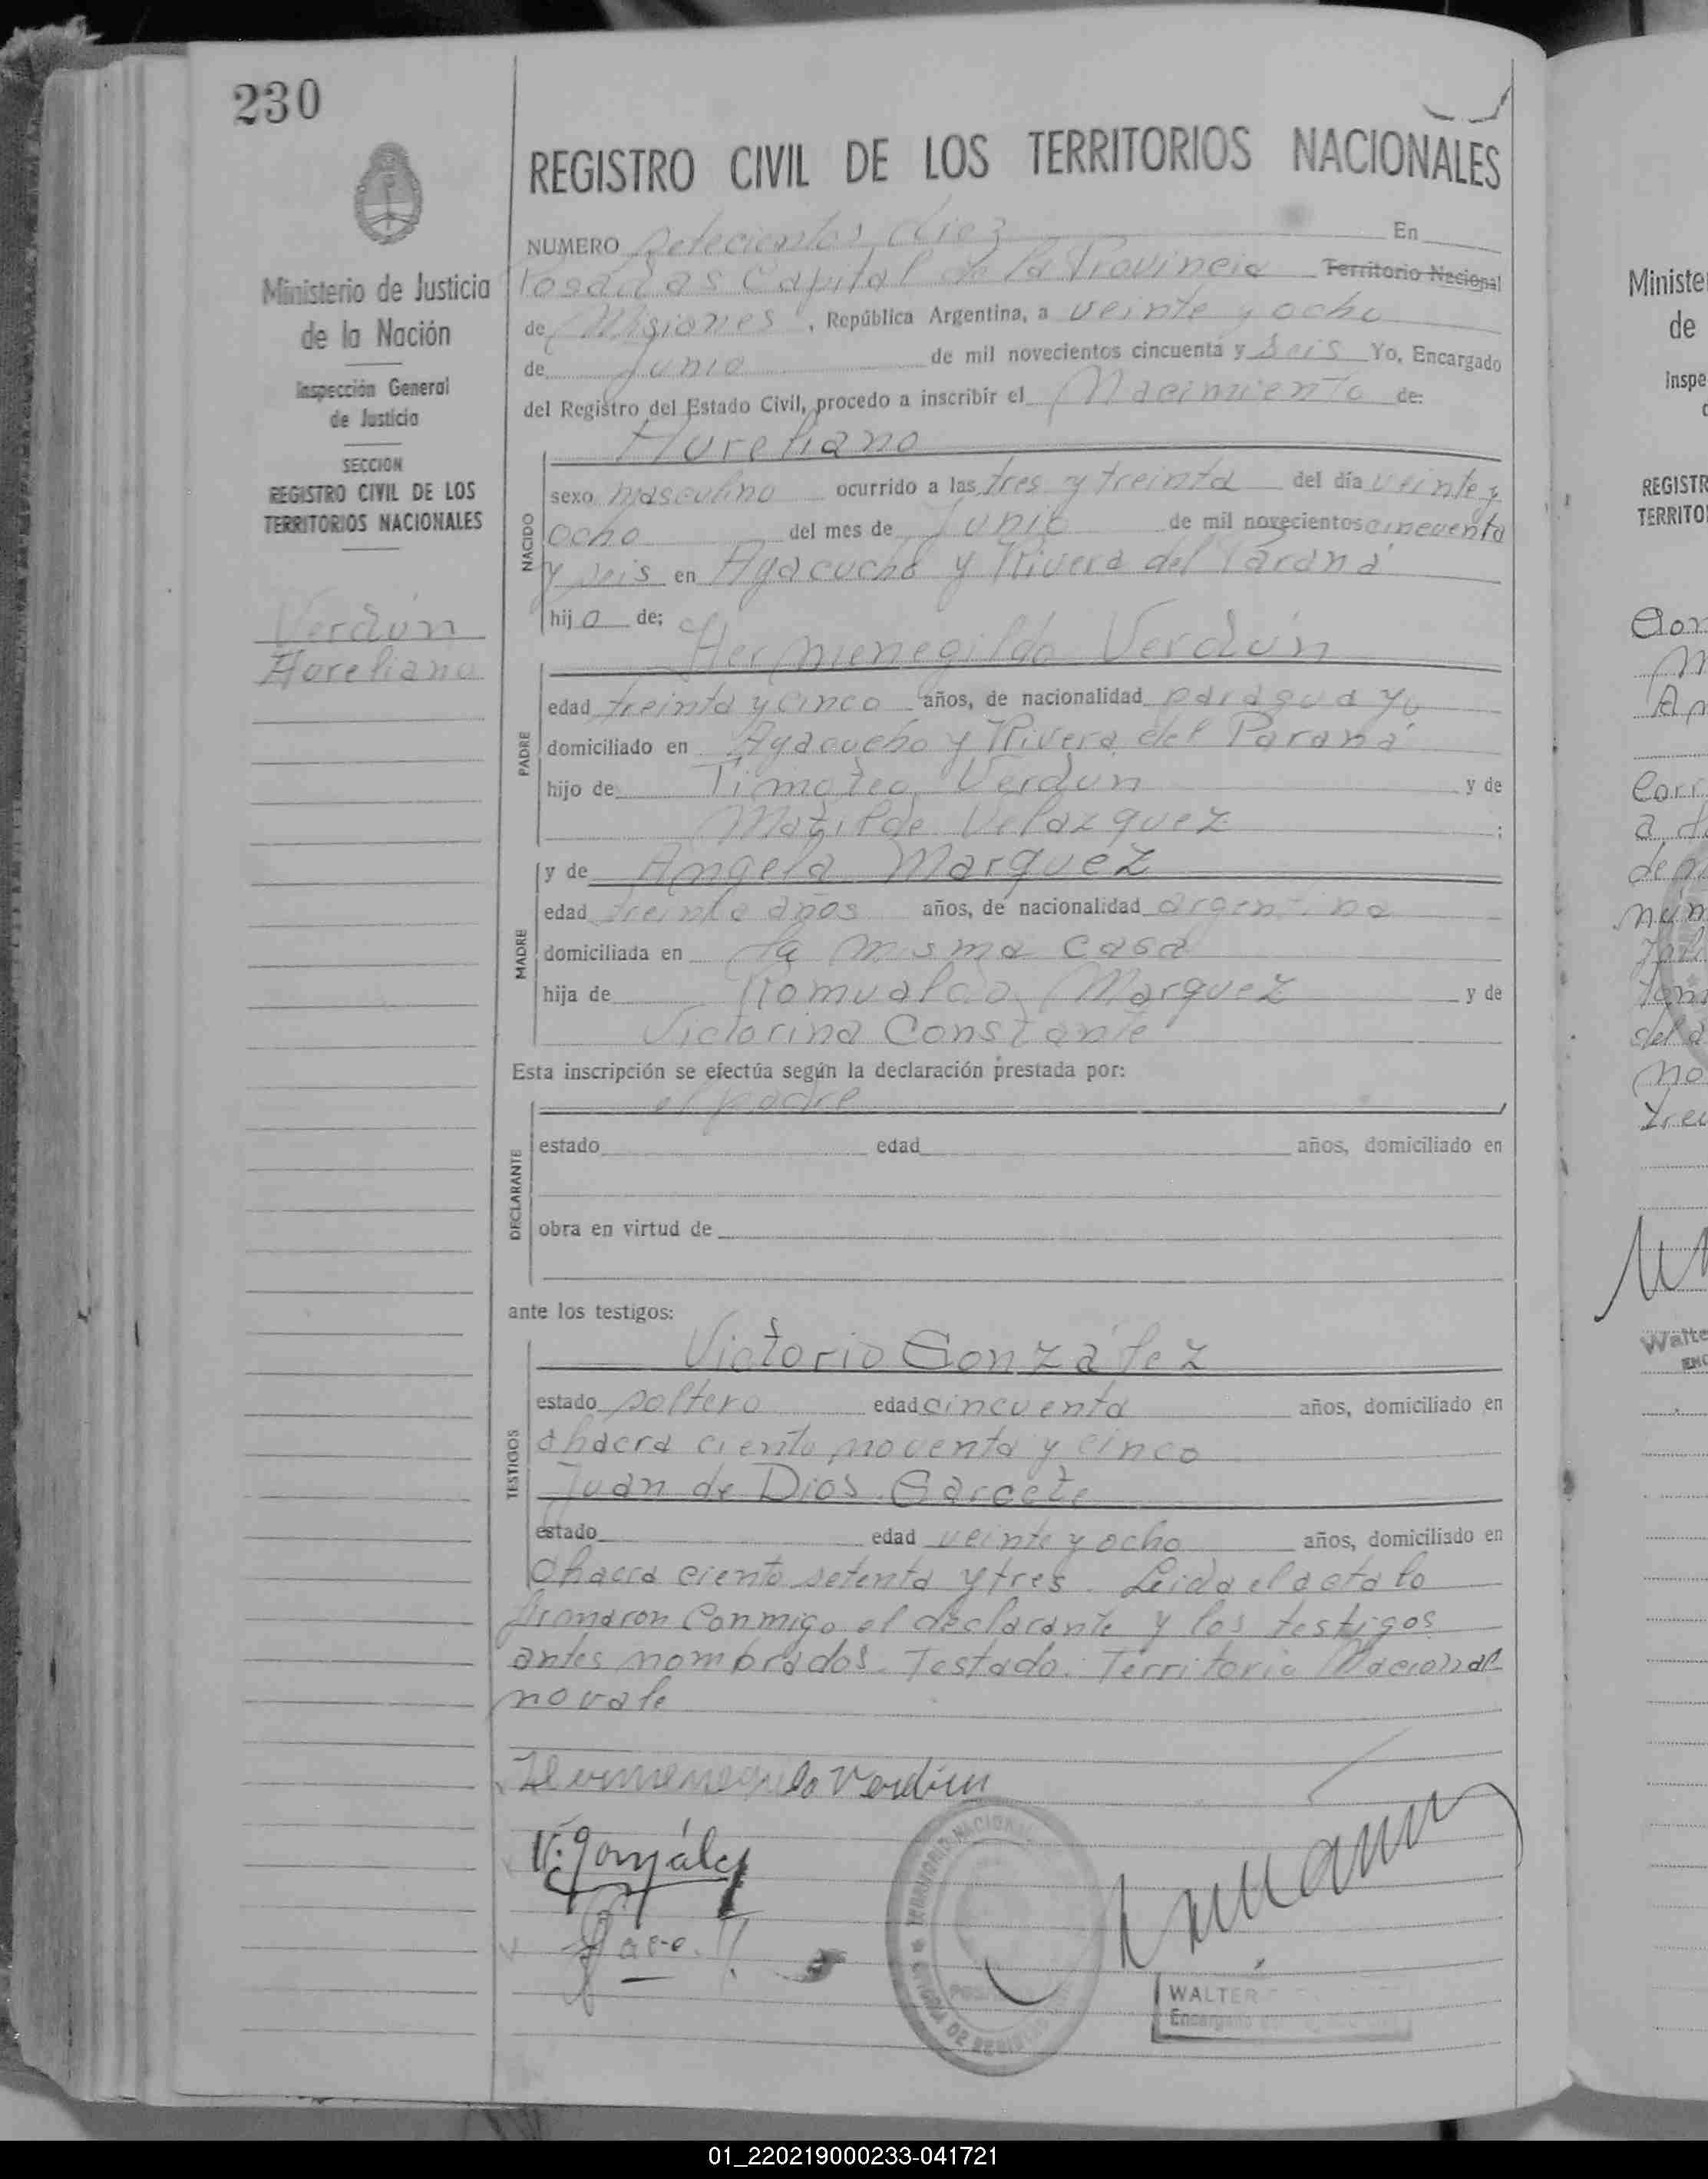 230
REGISTRO CIVIL DE LOS TERRITORIOS NACIONALES
Ministerio de Justicia
de la Nación
Inspección General
de Justicia
SECCION
REGISTRO CIVIL DE LOS
TERRITORIOS NACIONALES
Verdún
Aureliano
NUMERO Setecientos diez En
Posadas Capital de la Provincia Territorio Nacional
de Misiones, República Argentina, a veinte y ocho
de Junio de mil novecientos cincuenta y seis Yo, Encargado
del Registro del Estado Civil, procedo a inscribir el Nacimiento de:
Aureliano
NACIDO
sexo masculino ocurrido a las tres y treinta del día veinte y
ocho del mes de Junio de mil novecientos cincuenta
y seis en Ayacucho y Rivera del Paraná
hijo de;
Hermenegildo Verdún
PADRE
edad treinta y cinco años, de nacionalidad paraguayo
domiciliado en Ayacucho y Rivera del Paraná
hijo de Timoteo Verdún y de
Matilde Velazquez ;
MADRE
y de Angela Marquez
edad treinta años años, de nacionalidad argentina
domiciliada en la misma casa
hija de Romualdo Marquez y de
Victorina Constante
Esta inscripción se efectúa según la declaración prestada por:
el padre
DECLARANTE
estado edad años, domiciliado en
obra en virtud de
ante los testigos:
Victorio González
TESTIGOS
estado soltero edad cincuenta años, domiciliado en
chacra ciento noventa y cinco
Juan de Dios Garcete
estado edad veinte y ocho años, domiciliado en
chacra ciento setenta y tres. Leida el acta lo
firmaron conmigo el declarante y los testigos
antes nombrados. Testado: Territorio Nacional
no vale
Hermenegildo Verdún
V. González
WALTER
Encargado
Ministe
de
Inspe
REGISTR
TERRITO
Walte
01_220219000233-041721